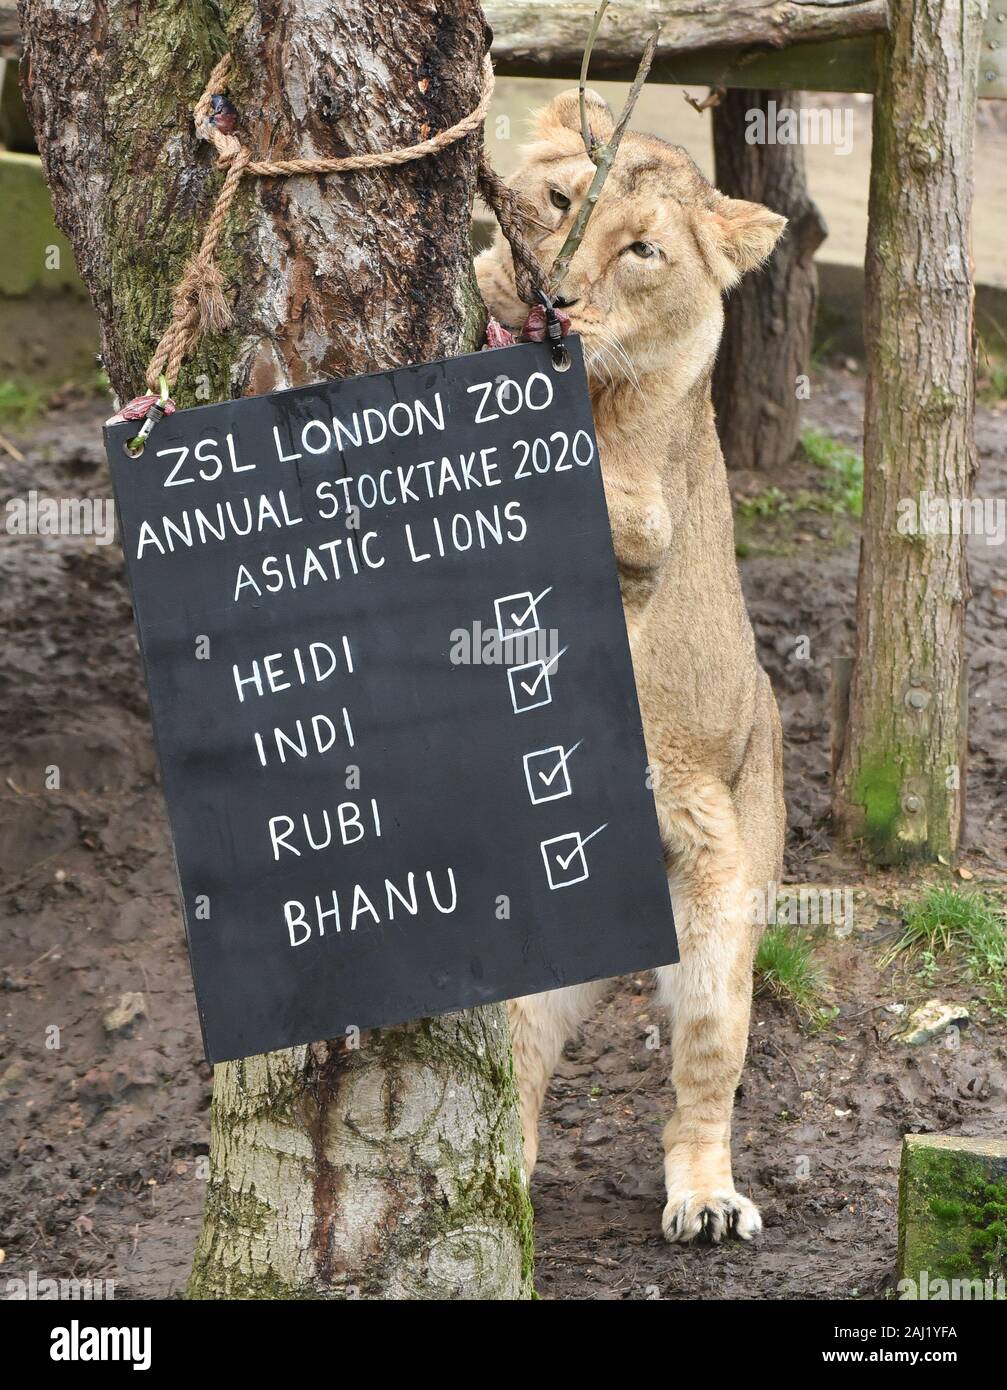 ZSL LONDON ZOO
ANNUAL STOCKTAKE 2020
ASIATIC LIONS
HEIDI
INDI
RUBI
BHANU
alamy
alamy
Image ID: 2AJ1YFA
www.alamy.com